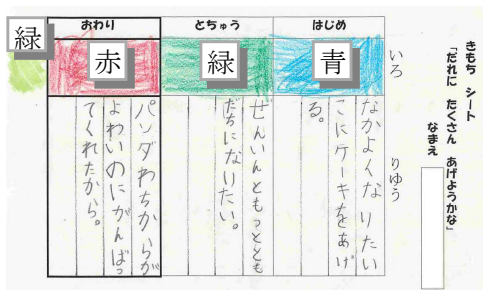 きもち シート
「だれに たくさん あげようかな」
なまえ
いろ
りゆう
はじめ
青
なかよくなりたい
こにケーキをあげ
る。
とちゅう
緑
ぜんいんともっととも
だちになりたい。
おわり
赤
パンダわちからが
よわいのにがんばっ
てくれたから。
緑